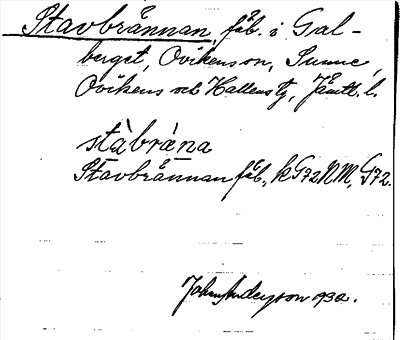 Stavbrännan, fäb. i Gal-
berget, Ovikens sn, Sunne,
Ovikens och Hallens tg, Jämtl. l.
stàbræ̀na
Stavbrännan fäb., k G72 NM, G72.
Johan Anderson 1932.